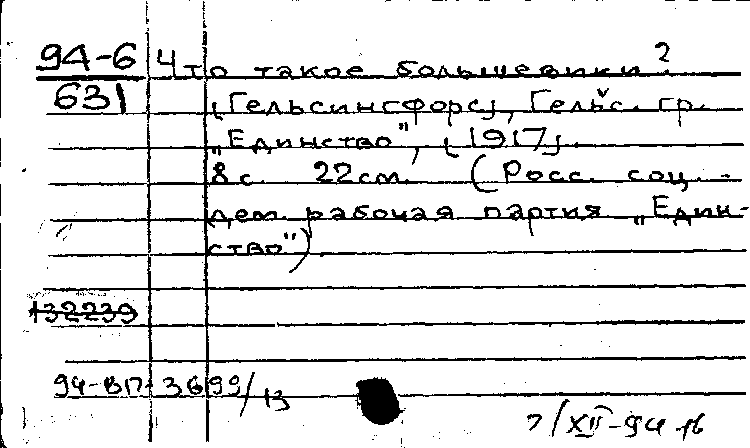 94-6 Что такое большевики?
631 [Гельсингфорс], Гельс. гр.
„Единство", [1917].
8 с. 22 см. (Росс. соц.-
дем. рабочая партия „Един-
ство")
132239
94-ВП-3699/13